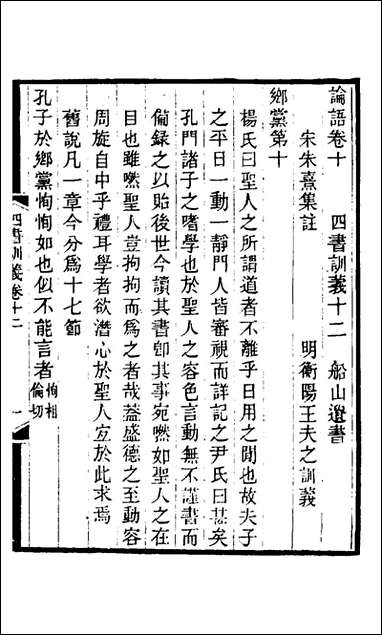 論語卷十　四書訓義十二　船山遺書
宋朱熹集註　明衡陽王夫之訓義
鄉黨第十
楊氏曰聖人之所謂道者不離乎日用之閒也故夫子
之平日一動一靜門人皆審視而詳記之尹氏曰甚矣
孔門諸子之嗜學也於聖人之容色言動無不謹書而
備録之以貽後世今讀其書卽其事宛然如聖人之在
目也雖然聖人豈拘拘而爲之者哉蓋盛德之至動容
周旋自中乎禮耳學者欲潛心於聖人宜於此求焉
舊說凡一章今分爲十七節
孔子於鄉黨恂恂如也似不能言者恂相倫切
四書訓義卷十二　一